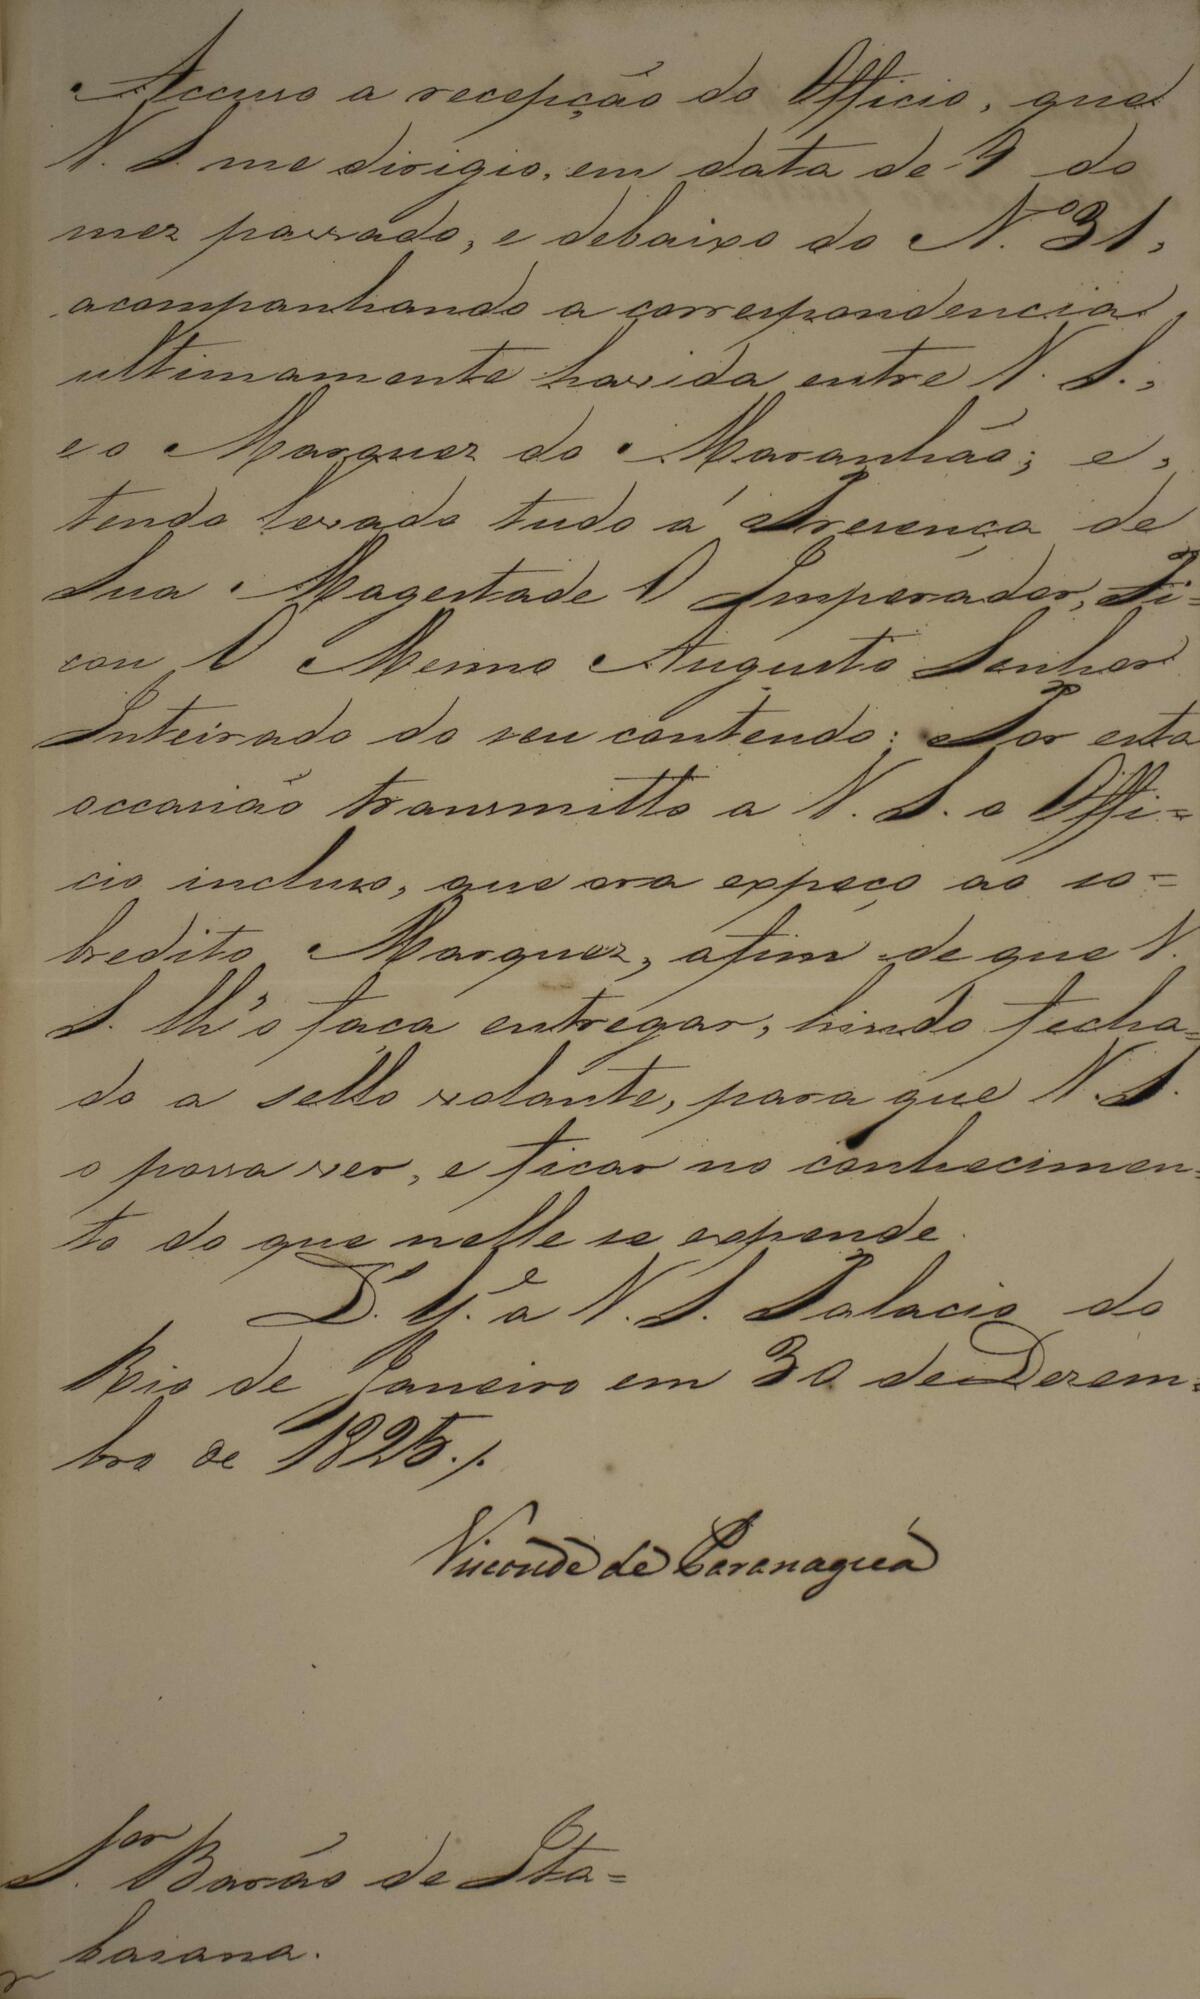 Accuso a recepção do Officio, que
V. S. me dirigio, em data de 9 do
mez passado, e debaixo do N.º 31,
acompanhando a correspondencia
ultimamente havida entre V. S.,
e o Marquez do Maranhão; e,
tendo levado tudo á Presença de
Sua Magestade O Imperador, Fi=
cou O Mesmo Augusto Senhor
Inteirado do seu contendo: Por esta
occasião transmitto a V. S. o Offi=
cio incluso, que ora expeço ao so=
bredito Marquez, afim de que V.
S. lh'o faça entregar, hindo fecha=
do a sello volante, para que V. S.
o possa ver, e ficar no conhecimen=
to do que nelle se expende.
D. G.e a V. S. Palacio do
Rio de Janeiro em 30 de Dezem=
bro de 1825./.
Visconde de Paranaguá
S.or Barão de Ita=
baiana.